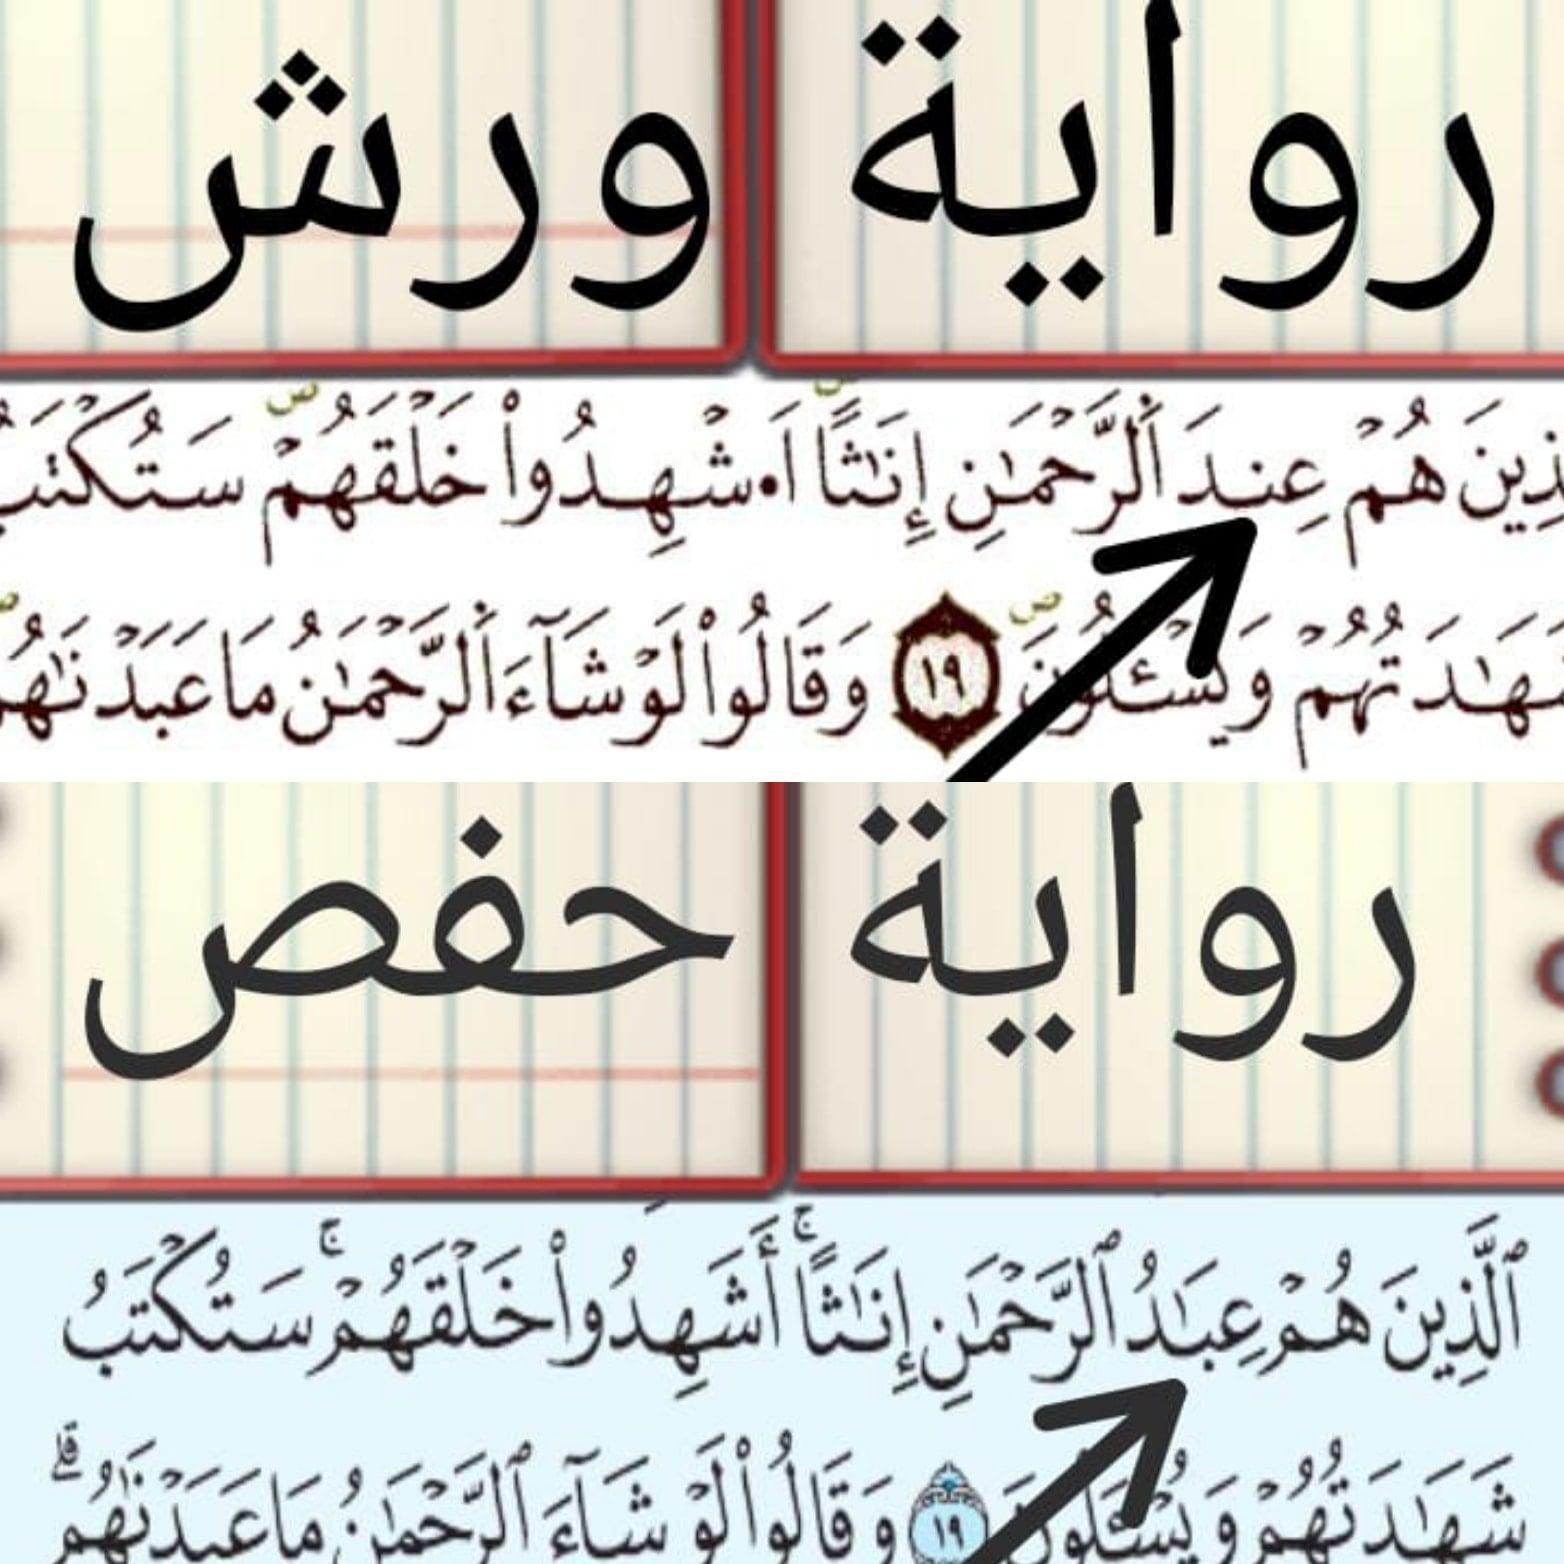 رواية ورش
ذِينَ هُمْ عِندَ اَ۬لرَّحْمَٰنِ إِنَٰثاًۖ اَ۟شْهِدُواْ خَلْقَهُمْۖ سَتُكْتَبُ
شَهَٰدَتُهُمْ وَيُسْـَٔلُونَۖ ١٩ وَقَالُواْ لَوْ شَآءَ اَ۬لرَّحْمَٰنُ مَا عَبَدْنَٰهُم
رواية حفص
ٱلَّذِينَ هُمْ عِبَٰدُ ٱلرَّحْمَٰنِ إِنَٰثًاۚ أَشَهِدُواْ خَلْقَهُمْۚ سَتُكْتَبُ
شَهَٰدَتُهُمْ وَيُسْـَٔلُونَ ١٩ وَقَالُواْ لَوْ شَآءَ ٱلرَّحْمَٰنُ مَا عَبَدْنَٰهُمۗ